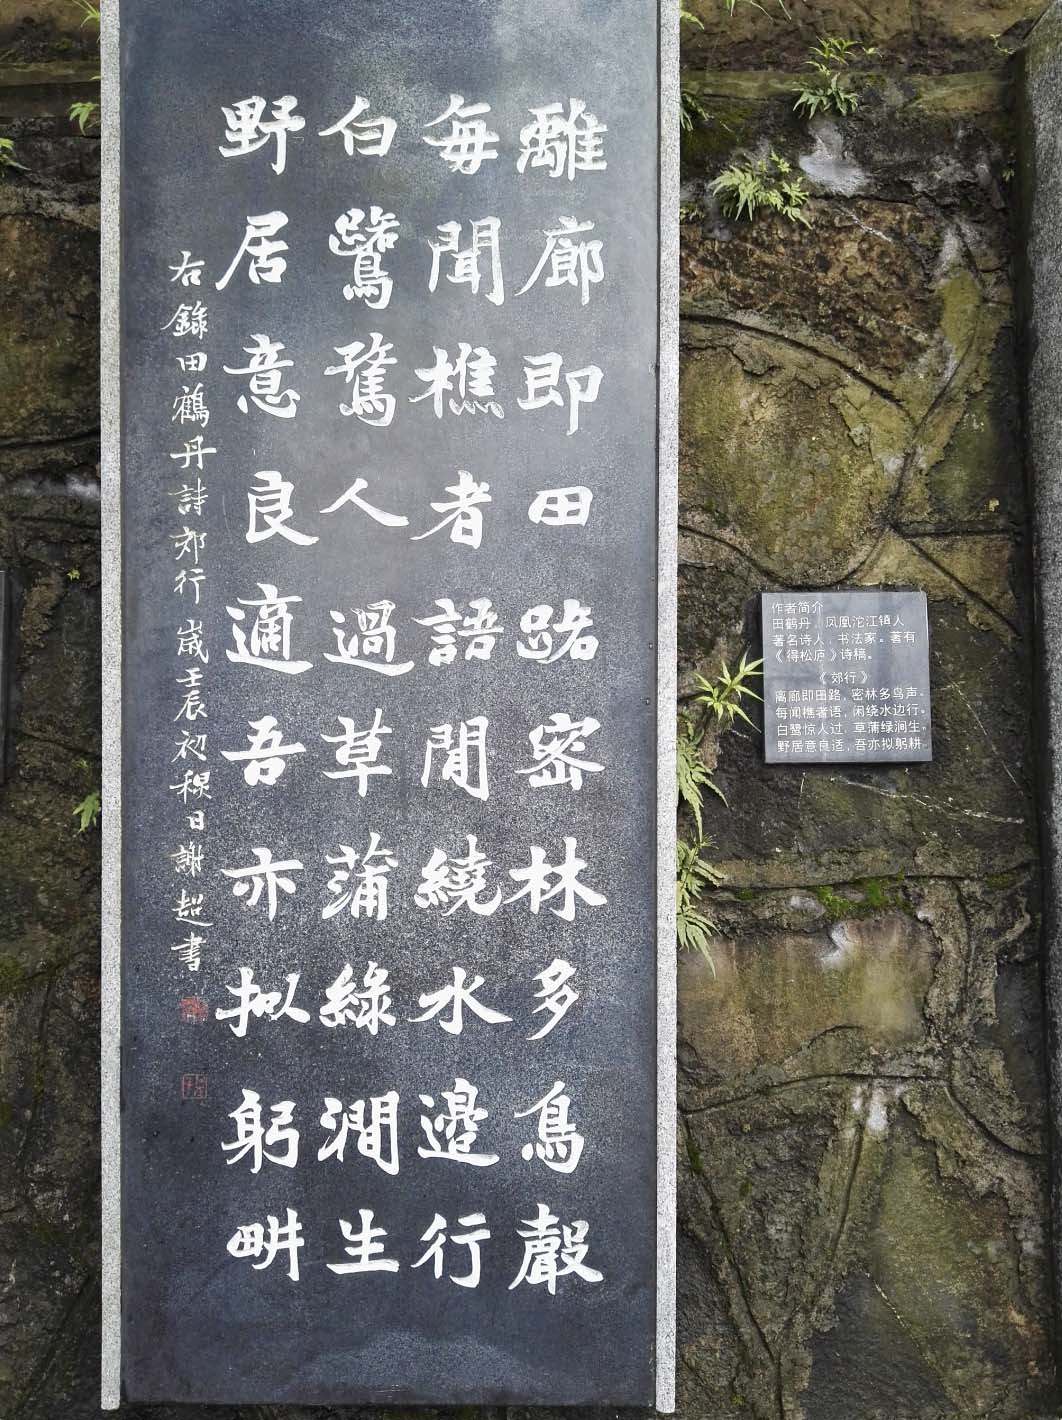 離廊即田路密林多鳥聲
每聞樵者語閒繞水邊行
白鷺驚人過草蒲綠澗生
野居意良適吾亦拟躬畊
右錄田鶴丹詩郊行 歲壬辰初穐日謝超書
作者简介
田鹤丹,凤凰沱江镇人
著名诗人,书法家。著有
《得松庐》诗稿。
《郊行》
离廊即田路,密林多鸟声。
每闻樵者语,闲绕水边行。
白鹭惊人过,草蒲绿涧生。
野居意良适,吾亦拟躬耕。